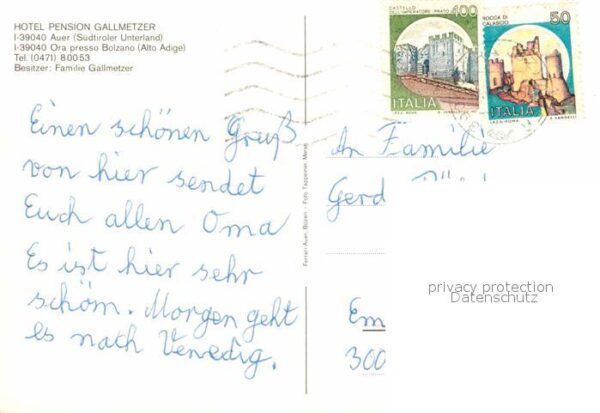 HOTEL PENSION GALLMETZER
I-39040 Auer (Südtiroler Unterland)
I-39040 Ora presso Bolzano (Alto Adige)
Tel. (0471) 80053
Besitzer: Familie Gallmetzer
CASTELLO DELL'IMPERATORE PRATO 400
ITALIA
ROCCA DI CALASCIO 50
ITALIA
Einen schönen Gruß
von hier sendet
Euch allen Oma
Es ist hier sehr
schöm. Morgen geht
es nach Venedig.
An Familie
Gerd
Em
300
privacy protection
Datenschutz